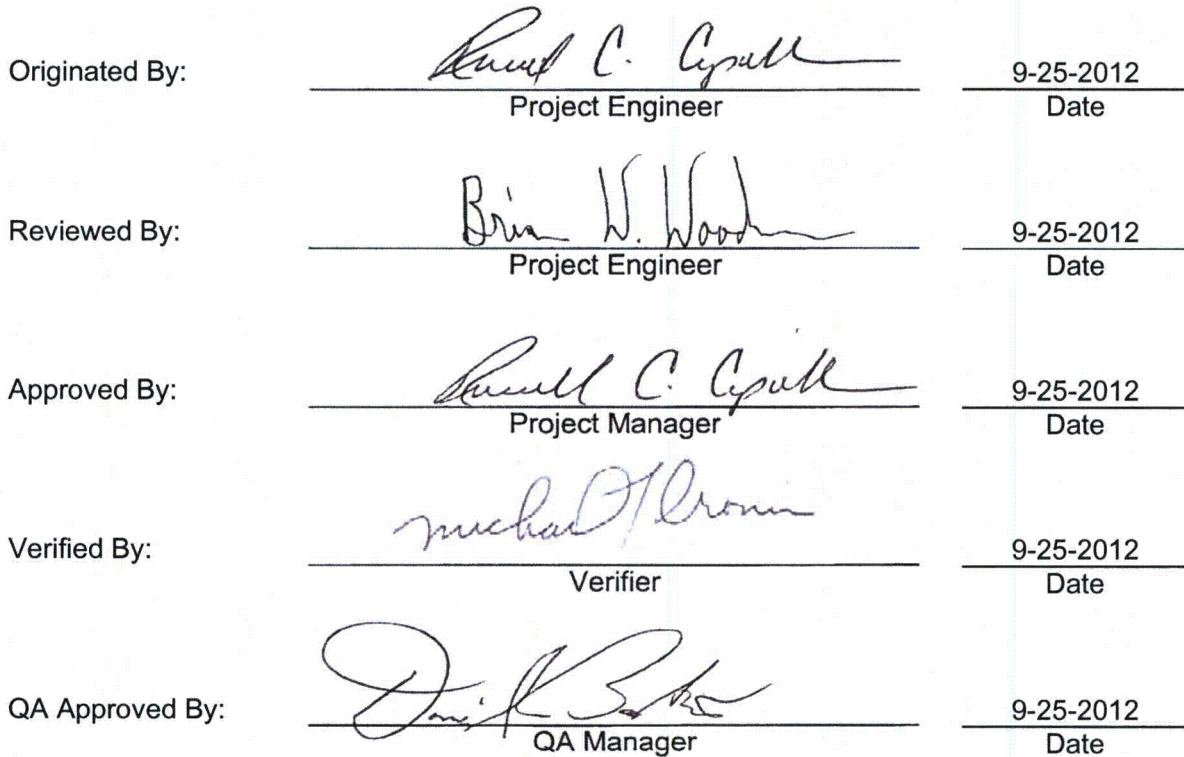 Originated By: Russell C. 9-25-2012
Project Engineer Date
Reviewed By: Brian W. 9-25-2012
Project Engineer Date
Approved By: Russell C. 9-25-2012
Project Manager Date
Verified By: Michael 9-25-2012
Verifier Date
QA Approved By: 9-25-2012
QA Manager Date